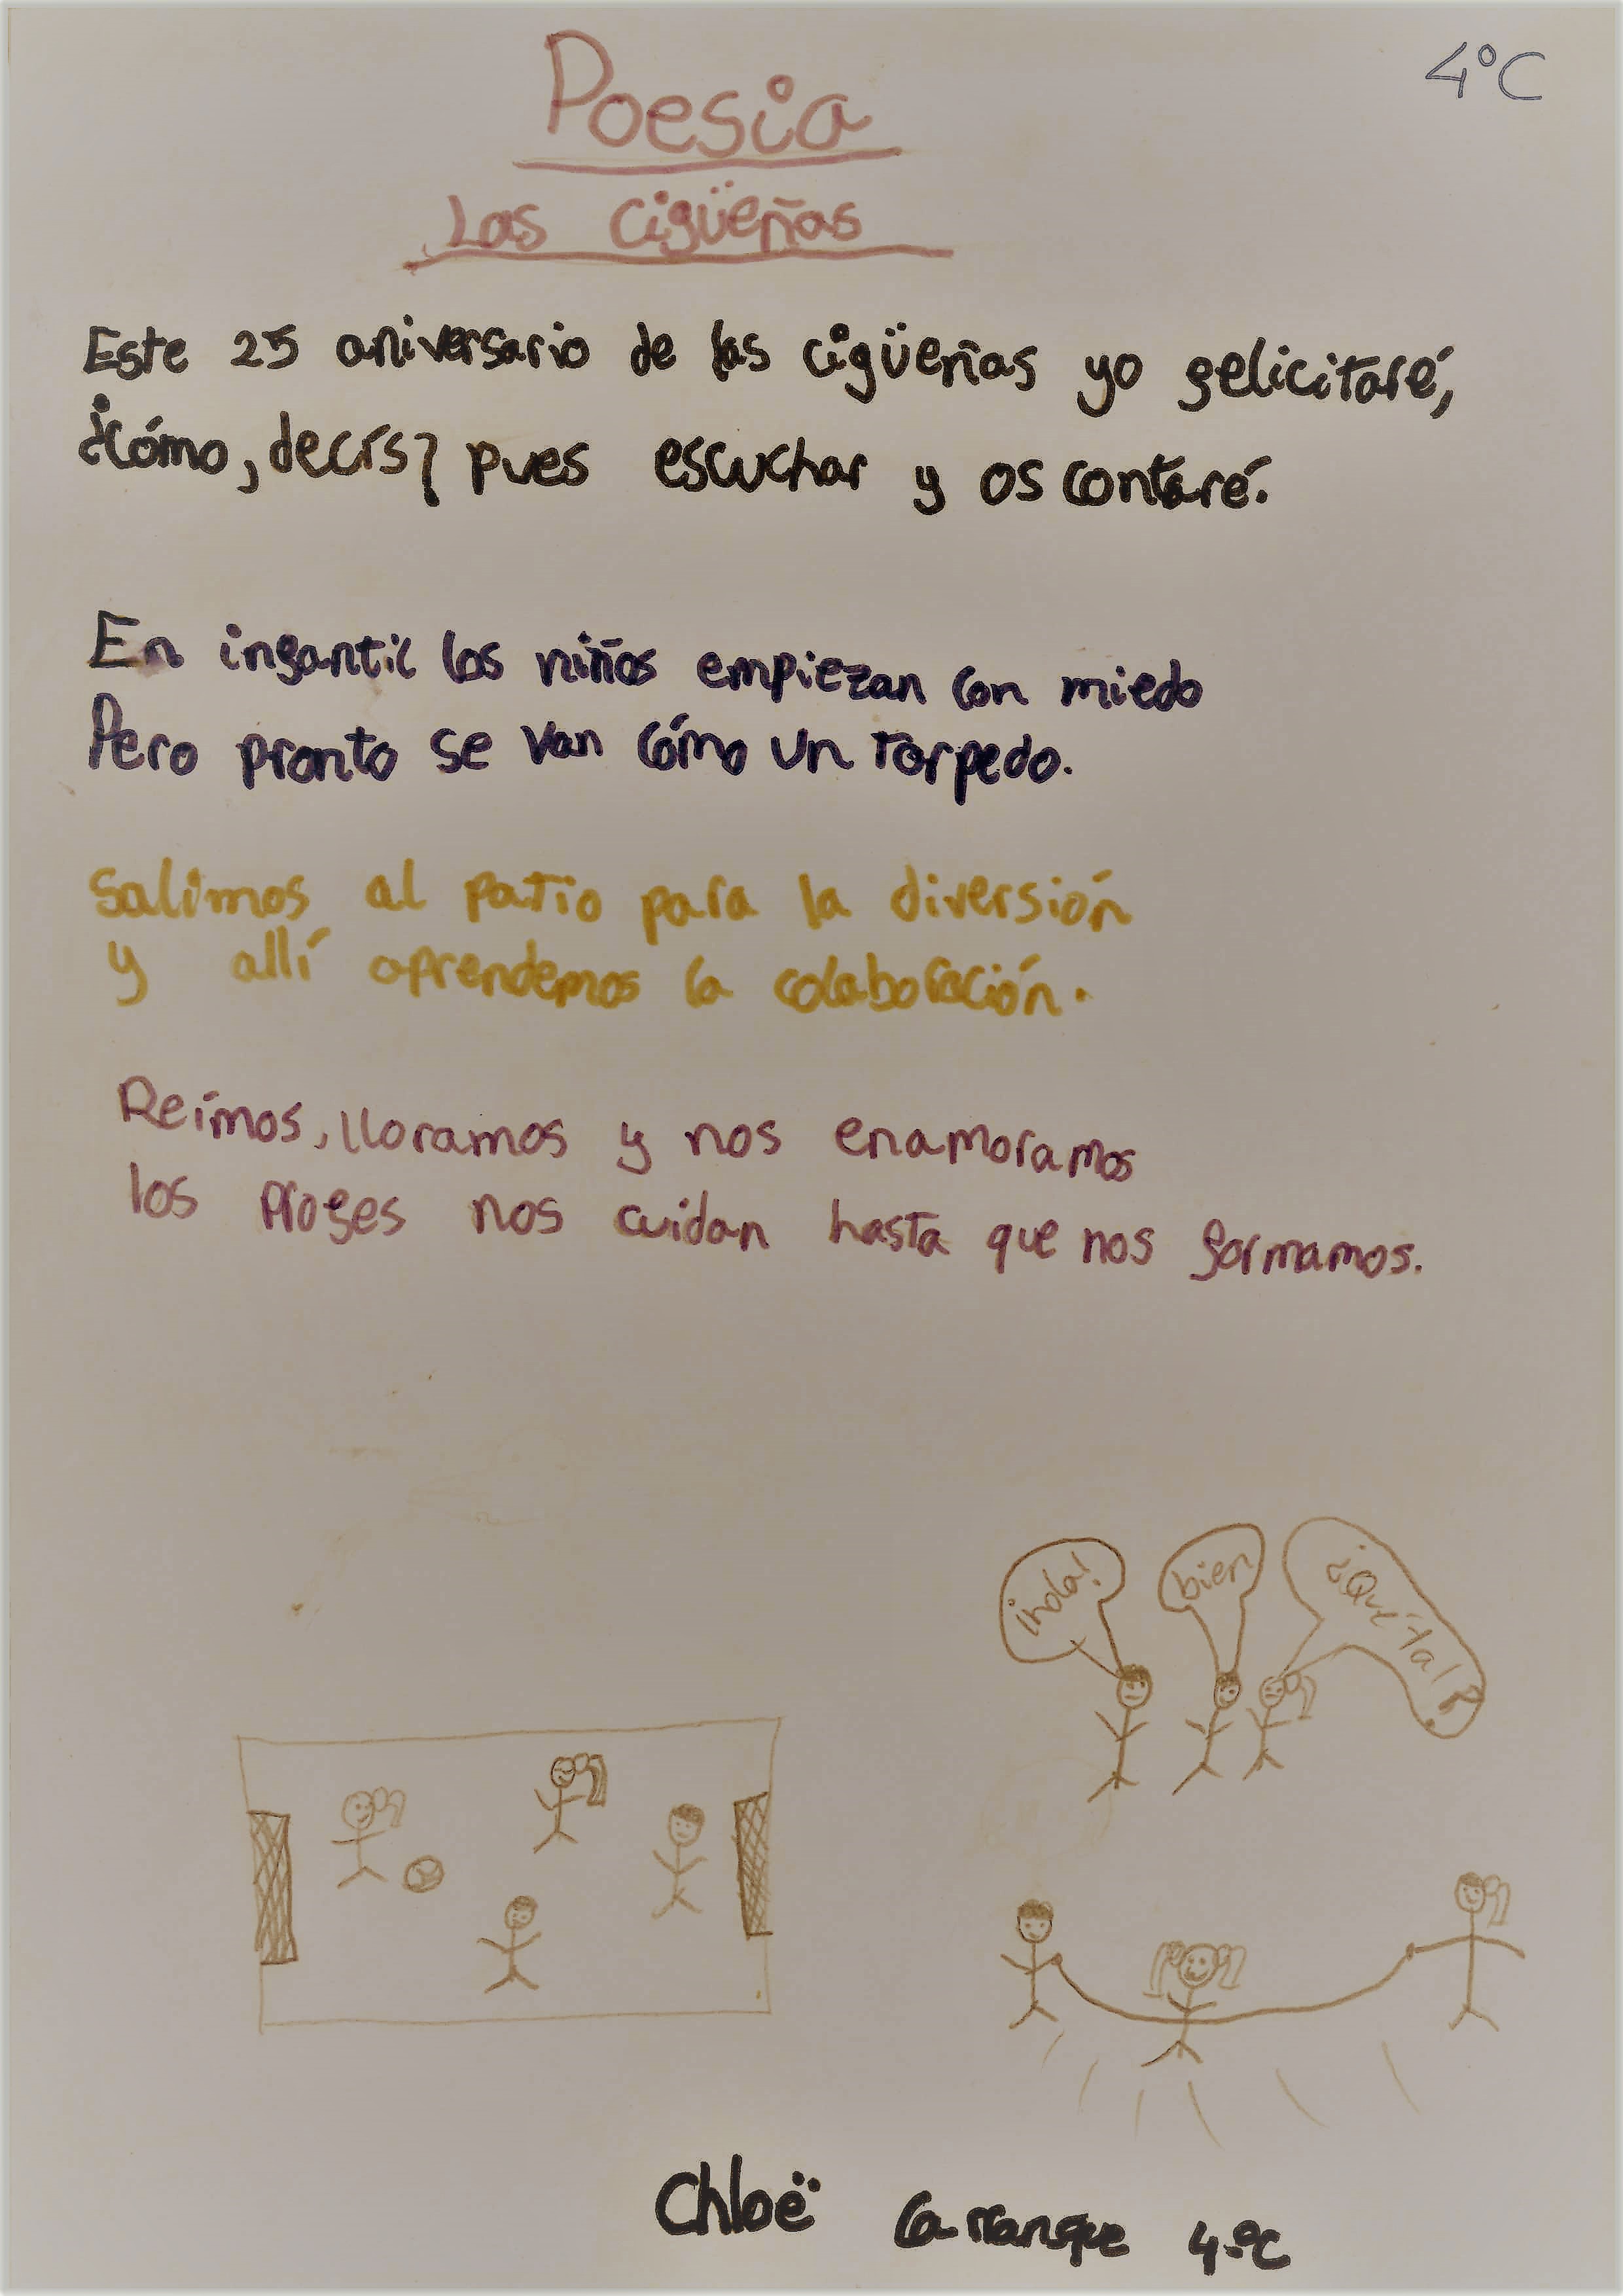 4ºC
Poesia
Las cigüeñas
Este 25 aniversario de las cigüeñas yo felicitaré,
¿Cómo, decís? pues escuchar y os contaré.
En infantil los niños empiezan con miedo
Pero pronto se van cómo un torpedo.
Salimos al patio para la diversión
y allí aprendemos la colaboración.
Reímos, lloramos y nos enamoramos
los profes nos cuidan hasta que nos formamos.
¡hola!
bien
¿Qué tal?
Chloë Carranque 4.ºC